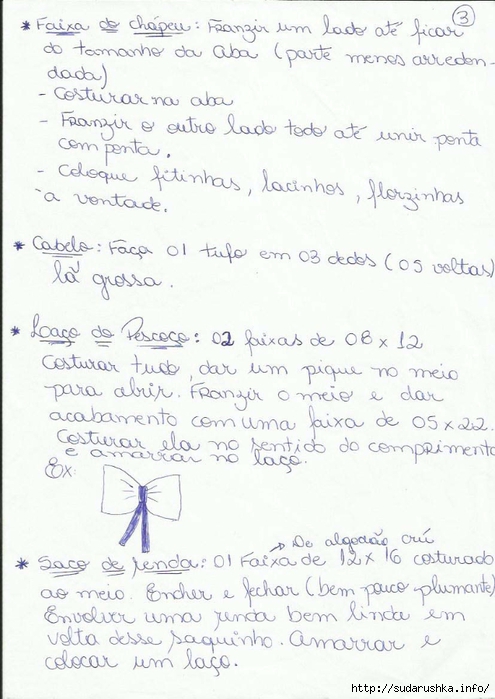 3
* Faixa do chápeu: Franzir um lado até ficar
do tamanho da aba (parte menos arreden-
dada)
- Costurar na aba
- Franzir o outro lado todo até unir ponta
com ponta.
- Coloque fitinhas, lacinhos, florzinhas
à vontade.
* Cabelo: Faça 01 tufo em 03 dedos (05 voltas)
lã grossa.
* Laço do Pescoço: 02 faixas de 08 x 12
Costurar tudo, dar um pique no meio
para abrir. Franzir o meio e dar
acabamento com uma faixa de 05 x 22.
Costurar ela no sentido do comprimento
e amarrar no laço.
Ex:
→ De algodão crú
* Saco de renda: 01 Faixa de 12 x 16 costurado
ao meio. Encher e fechar (bem pouco plumante)
Envolver uma renda bem linda em
volta desse saquinho. Amarrar e
colocar um laço.
http://sudarushka.info/